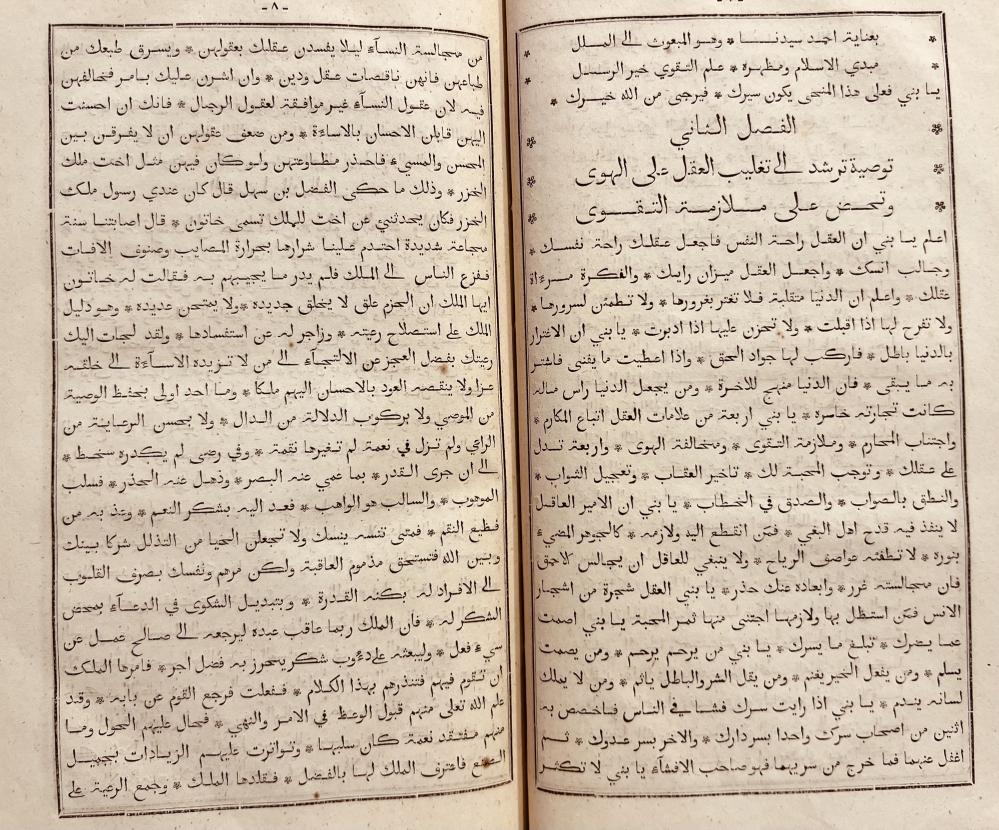 بعناية احمد سيدنــا * وهو المبعوث الى الملل
مبدي الاسلام ومظهره * علم التقوي خير الرسل
يا بني فعلى هذا المنحى يكون سيرك * فيرجى من الله خيرك *
الفصل الثاني
توصية ترشد الى تغليب العقل على الهوى
وتحض على ملازمة التقوى
اعلم يا بني ان العقل راحة النفس فاجعل عقلك راحة نفسك *
وجالب انسك * واجعل العقل ميزان رايك * والفكرة مرءاة
عقلك * واعلم ان الدنيا متقلبة فلا تغتر بغرورها * ولا تطمئن لسرورها *
ولا تفرح لها اذا اقبلت * ولا تحزن عليها اذا ادبرت * يا بني ان الاغترار
بالدنيا باطل * فاركب لها جواد الحق * واذا اعطيت ما يفنى فاشتر
به ما يبقى * فان الدنيا منهج للاخرة * ومن يجعل الدنيا راس ماله
كانت تجارته خاسرة * يا بني اربعة من علامات العقل اتباع المكارم *
واجتناب المحارم * وملازمة التقوى * ومخالفة الهوى * واربعة تدل
على عقلك * وتوجب المحبة لك * تاخير العقاب * وتعجيل الثواب *
والنطق بالصواب * والصدق في الخطاب * يا بني ان الامير العاقل
لا ينفذ فيه قدح اهل البغي * فمن انقطع اليه ولازمه * كالجوهر المضيء
بنوره * لا تطفئه عواصف الرياح * ولا ينبغي للعاقل ان يجالس الاحمق
فان مجالسته غرر * وابعاده عنك حذر * يا بني العقل شجرة من اشجار
الانس فمن استظل بها ولازمها اجتنى منها ثمر المحبة يا بني اصمت
عما يضرك * تبلغ ما يسرك * يا بني من يرحم يرحم * ومن يصمت
يسلم * ومن يفعل الخير يغنم * ومن يقل الشر والباطل ياثم * ومن لا يملك
لسانه يندم * يا بني اذا رايت سرك فشا في الناس فاخصص به
اثنين من اصحاب سرك واحدا بسر دارك * والاخر بسر عدوك * ثم
اغفل عنهما فما خرج من سريهما فهو صاحب الافشاء يا بني لا تكثر
- ٨ -
من مجالسة النساء ليلا يفسدن عقلك بعقولهن * ويسرق طبعك من
طباعهن فانهن ناقصات عقل ودين * وان اشرن عليك بامر فخالفهن
فيه لان عقول النساء غير موافقة لعقول الرجال * فانك ان احسنت
اليهن قابلن الاحسان بالاساءة * ومن ضعف عقولهن ان لا يفرقن بين
المحسن والمسيء فاحذر مطاوعتهن ولو كان فيهن مثل اخت ملك
الخزر * وذلك ما حكى الفضل بن سهل قال كان عندي رسول ملك
الخزر فكان يحدثني عن اخت للملك تسمى خاتون * قال اصابتنا سنة
مجاعة شديدة احتدم علينا شرارها بحرارة المصايب وصنوف الافات
ففزع الناس الى الملك فلم يدر ما يجيبهم به فقالت له خاتون
ايها الملك ان الحزم علق لا يخلق جديده * ولا يمتحن عديده * وهو دليل
الملك على استصلاح رعيته * وزاجر له عن استفسادها * ولقد لجات اليك
رعيتك بفضل العجز عن الالتجاء الى من لا تزيده الاساءة الى خلقه
عزا ولا ينقصه العود بالاحسان اليهم ملكا * وما احد اولى بحفظ الوصية
من الموصي ولا بركوب الدلالة من الدال * ولا بحسن الرعاية من
الراعي ولم تزل في نعمة لم تغيرها نقمة * وفي رضى لم يكدره سخط *
الى ان جرى القدر * بما عمي عنه البصر * وذهل عنه الحذر * فسلب
الموهوب * والسالب هو الواهب * فعد اليه بشكر النعم * وعذ به من
فظيع النقم * فمتى تنسه ينسك ولا تجعلن الحيا من التذلل شركا بينك
وبين الله فتستحق مذموم العاقبة ولكن مرهم ونفسك بصرف القلوب
الى الاقرار له بكنه القدرة * وبتبديل الشكوى في الدعاء بمحض
الشكر له * فان الملك ربما عاقب عبده ليرجعه الى صالح عمل عن
سيء فعل * وليبعثه على دءوب شكر يحرز به فضل اجر * فامرها الملك
ان تقوم فيهم فتنذرهم بهذا الكلام * ففعلت فرجع القوم عن بابه * وقد
علم الله تعالى منهم قبول الوعظ في الامر والنهي * فحال عليهم الحول وما
منهم مفتقد نعمة كان سلبها * وتواترت عليهم الزيادات بجميل
الصنع فاعترف الملك لها بالفضل * فقلدها الملك * وجمع الرعية على